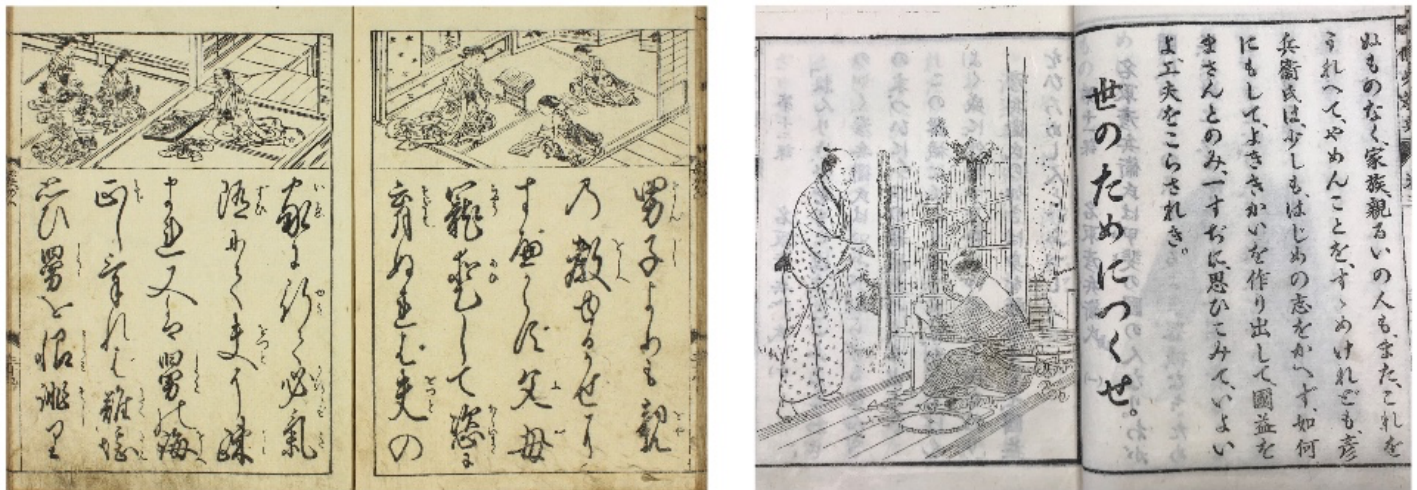 男子よりも親
の教ゆるかせに
すべからず父母
寵愛して恣に
育ぬれば夫の
家に行て必氣
随にて夫に疎
まれ又は舅の誨
正しければ難堪
思ひ舅を恨誹り
ぬものなく、家族親るいの人もまた、これを
うれへて、やめんことを、すゝめけれども、彦
兵衞氏は、少しも、はじめの志をかへず、如何
にもして、よききかいを作り出して、國益を
まさんとのみ、一すぢに思ひこみて、いよい
よ、工夫をこらされき。
世のためにつくせ。